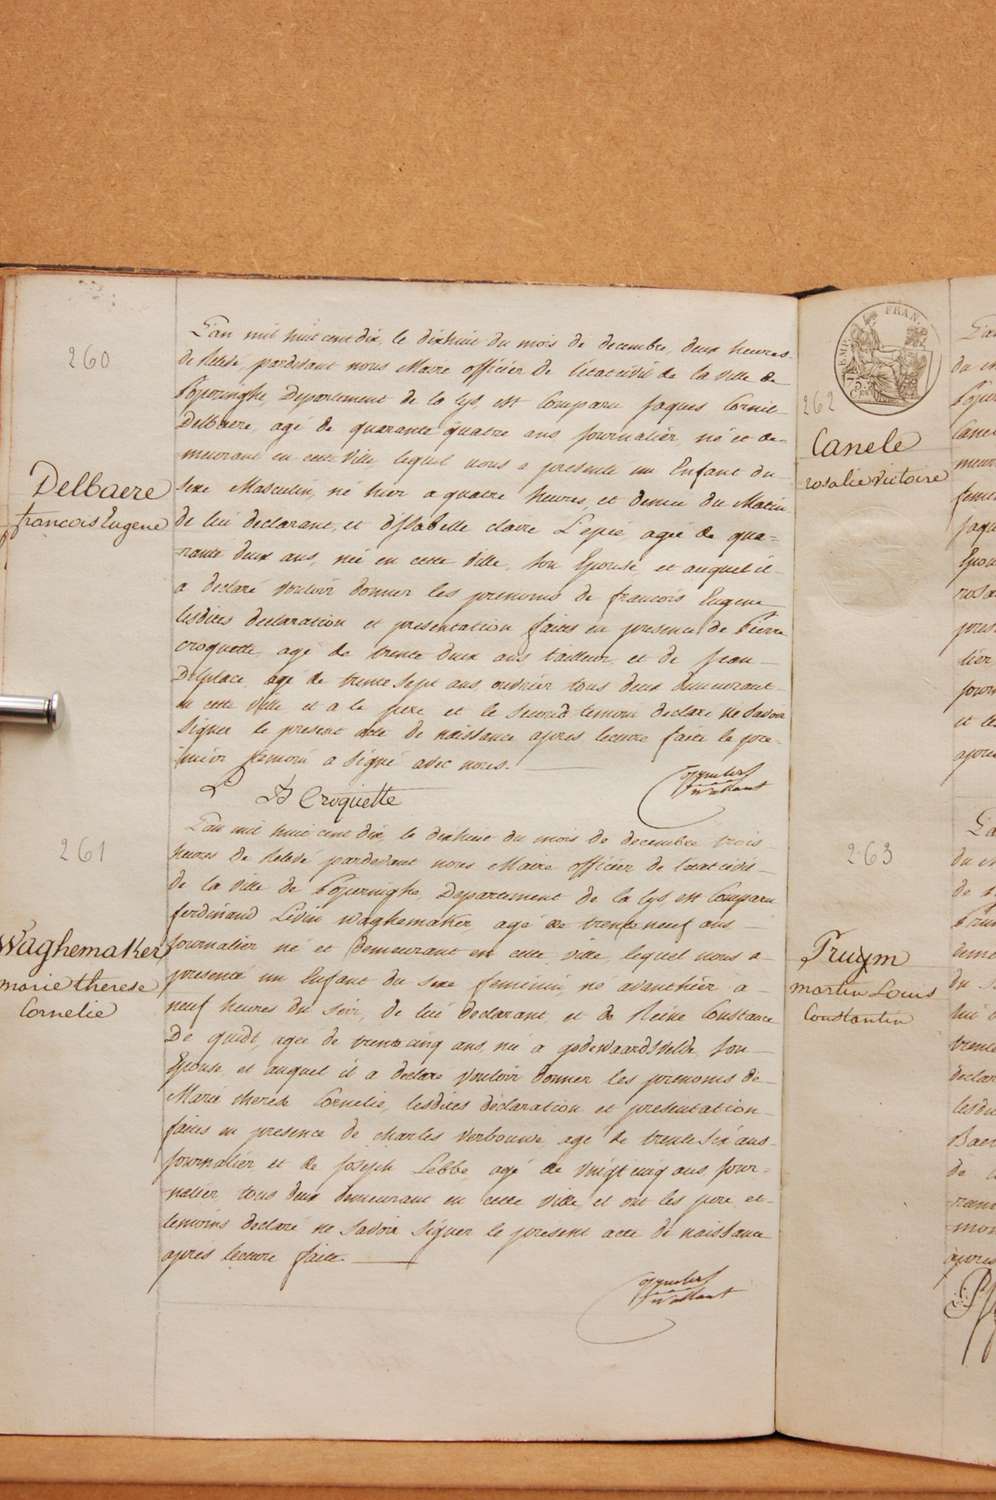 260
Delbaere
francois Eugene
L'an mil huit cent dix, le dixhuit du mois de decembre, deux heures
de Relevé, pardevant nous Maire officier de l'état civil de la ville de
Poperinghe, Departement de la Lys, est Comparu Jaques Cornil
Delbaere, agé de quarante quatre ans journalier, né et de-
meurant en cette Ville, lequel nous a presenté un Enfant du
sexe Masculin, né hier a quatre heures, et demie du Matin
de lui declarant, et d'Isabelle claire Lepié, agée de qua-
rante deux ans, née en cette Ville, Son Epouse, et auquel il-
a declaré vouloir donner les prenoms de francois Eugene
lesdites declaration et presentation faites en presence de Pierre
croquette, agé de trente deux ans tailleur, et de Jean-
Delplace, agé de trente sept ans ouvrier tous deux demeurant
en cette Ville et a le pere et le second temoin declaré ne Savoir
Signer le present acte de naissance apres lecture faite le pre-
mier temoin a Signé avec nous.
P B Croquette
261
Waghemaker
marie therese
Cornelie
L'an mil huit cent dix, le dixhuit du mois de decembre trois
heures de Relevé pardevant nous Maire officier de l'etat civil-
de la Ville de Poperinghe, Departement de la Lys est Comparu
ferdinand Livin waghemaker, agé de trente neuf ans
journalier né et demeurant en cette ville, lequel nous a-
presenté un Enfant du sexe feminin, né avanthier a-
neuf heures du soir, de lui declarant et de Reine Constance
De quidt, agée de trente cinq ans, née a godewaardsvelde, Son-
Epouse, et auquel il a declaré vouloir donner les prenoms de-
Marie therese Cornelie, lesdites declaration et presentation-
faites en presence de charles Verbouwe, agé de trente six ans
journalier et de Joseph Lebbe, agé de vingt cinq ans jour-
nalier, tous deux demeurant en cette Ville, et ont les pere et-
temoins declaré ne Savoir Signer le present acte de naissance
après lecture faite.
262
Canele
rosalie victoire
263
Pruym
martin Louis
Constantin